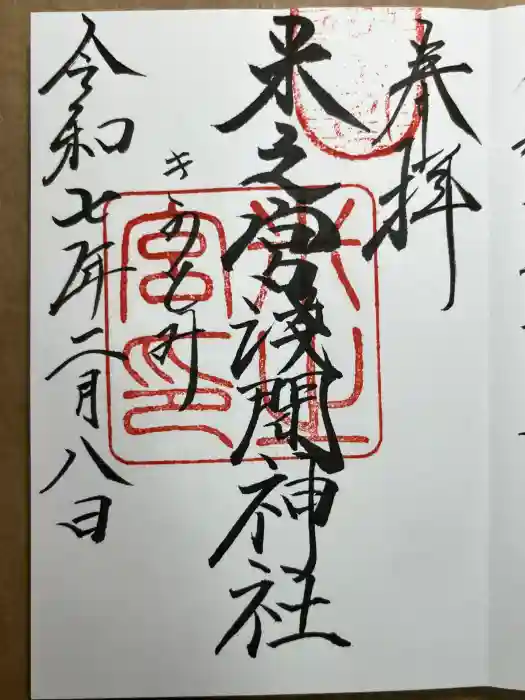 奉拝
米之宮浅間神社
令和七年二月八日
米之宮印